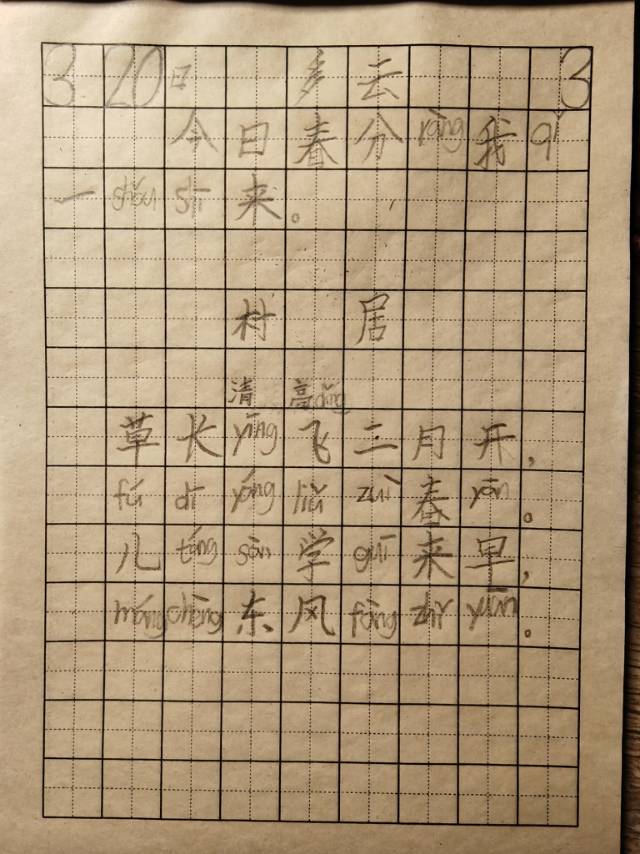 3 20日 多云 3
今日春分ràng我qǐ
一shǒu shī来。
村居
清 高dǐng
草长yīng飞二月开，
fú dī yáng liǔ zuì春yān。
儿tóng sàn学guī来早，
máng chèng东风fàng zhǐ yuān。